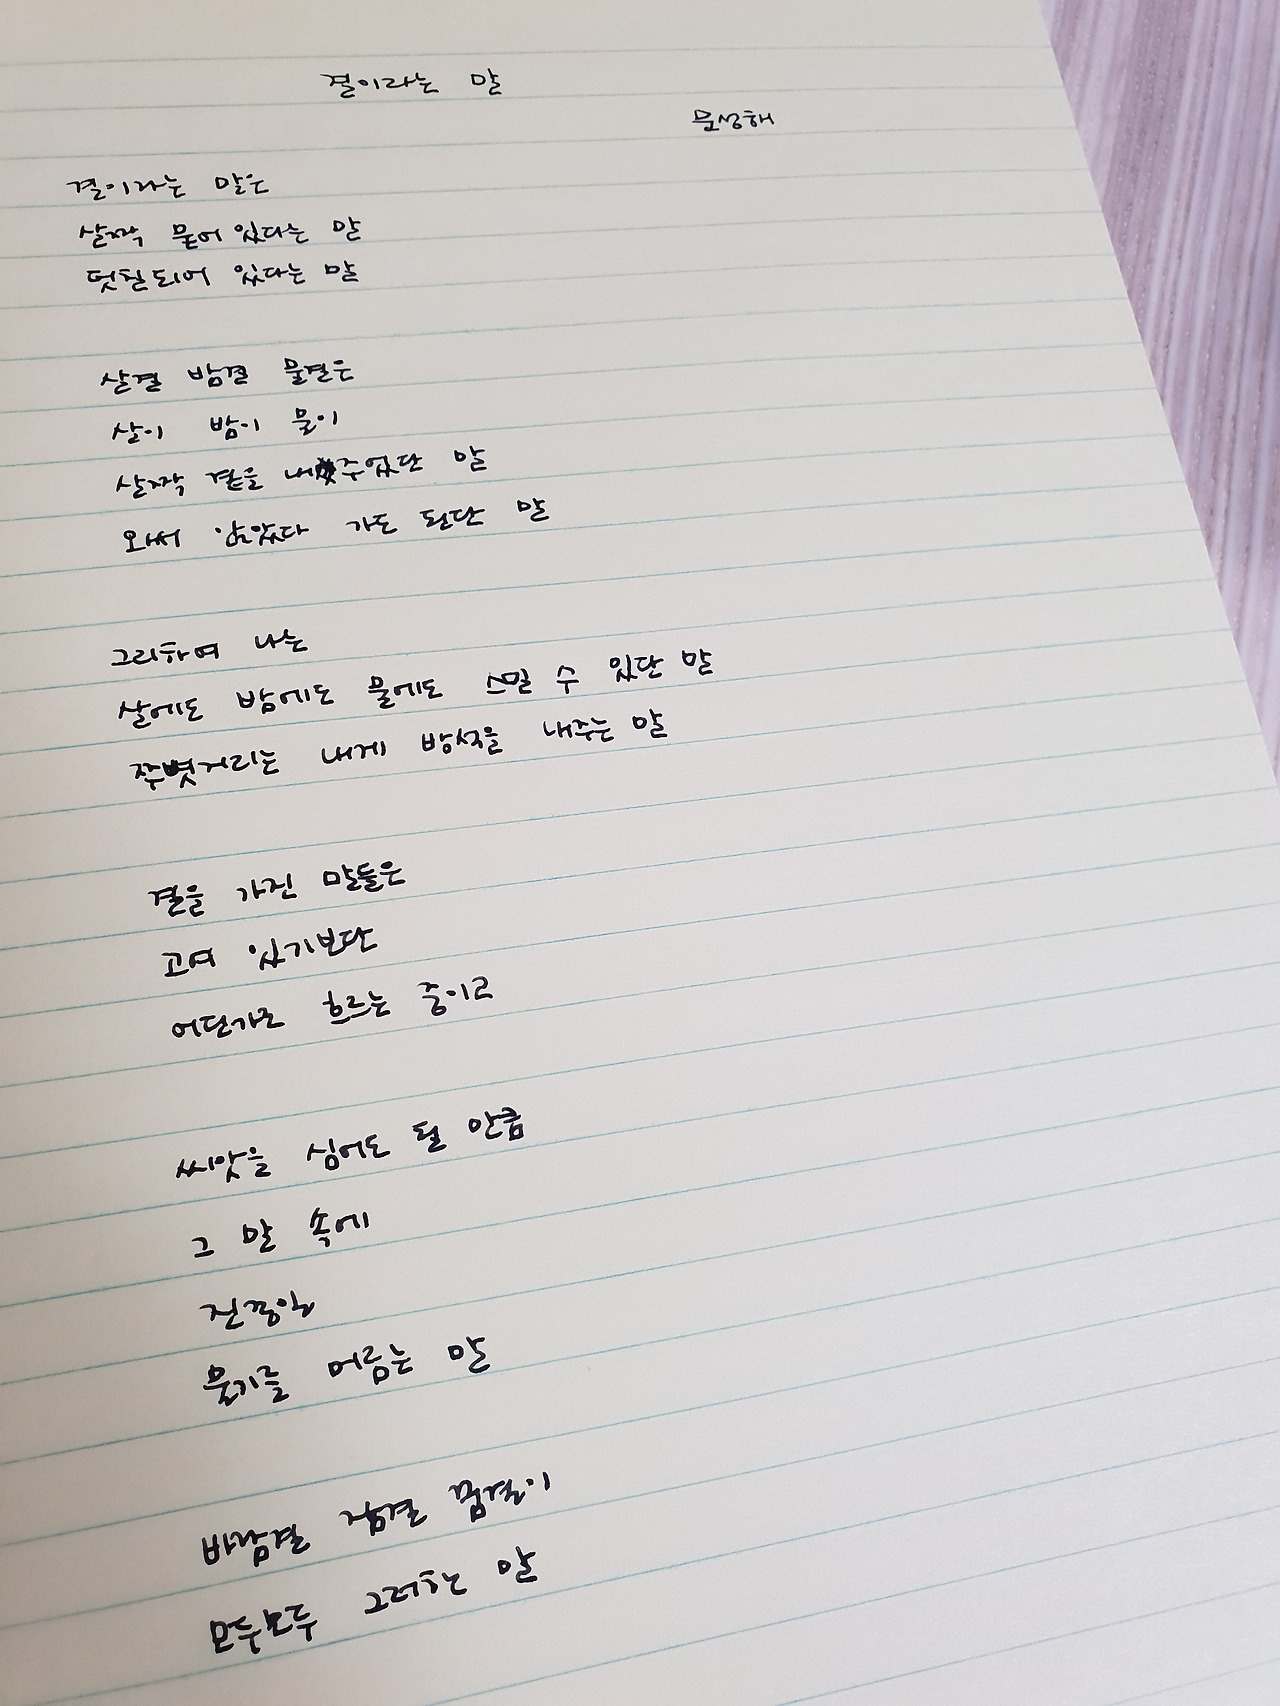 결이라는 말
문성해
결이라는 말은
살짝 묻어 있다는 말
덧칠되어 있다는 말
살결 밤결 물결은
살이 밤이 물이
살짝 곁을 내주었단 말
와서 앉았다 가도 된단 말
그리하여 나는
살에도 밤에도 물에도 스밀 수 있단 말
쭈뼛거리는 내게 방석을 내주는 말
결을 가진 말들은
고여 있기보단
어딘가로 흐르는 중이고
씨앗을 심어도 될 만큼
그 말 속에
진종일
물기를 머금는 말
바람결 잠결 꿈결이
모두모두 그러한 말